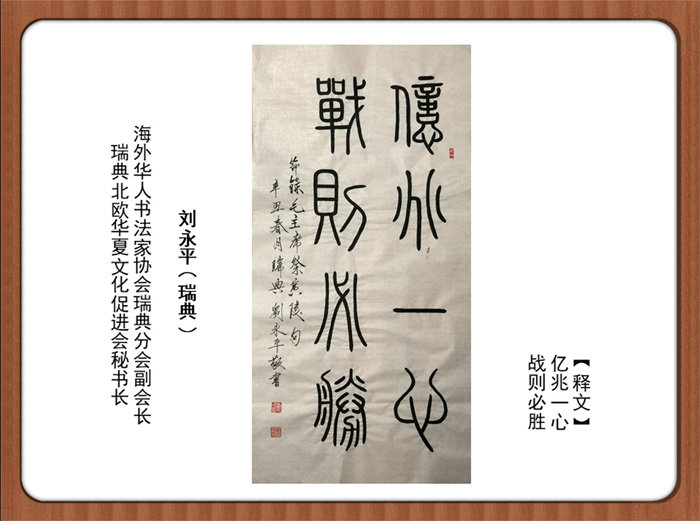 【释文】
亿兆一心
战则必胜
億兆一心
戰則必勝
节录毛主席祭黄陵句
辛丑春月瑞典劉永平敬書
刘永平（瑞典）
海外华人书法家协会瑞典分会副会长
瑞典北欧华夏文化促进会秘书长